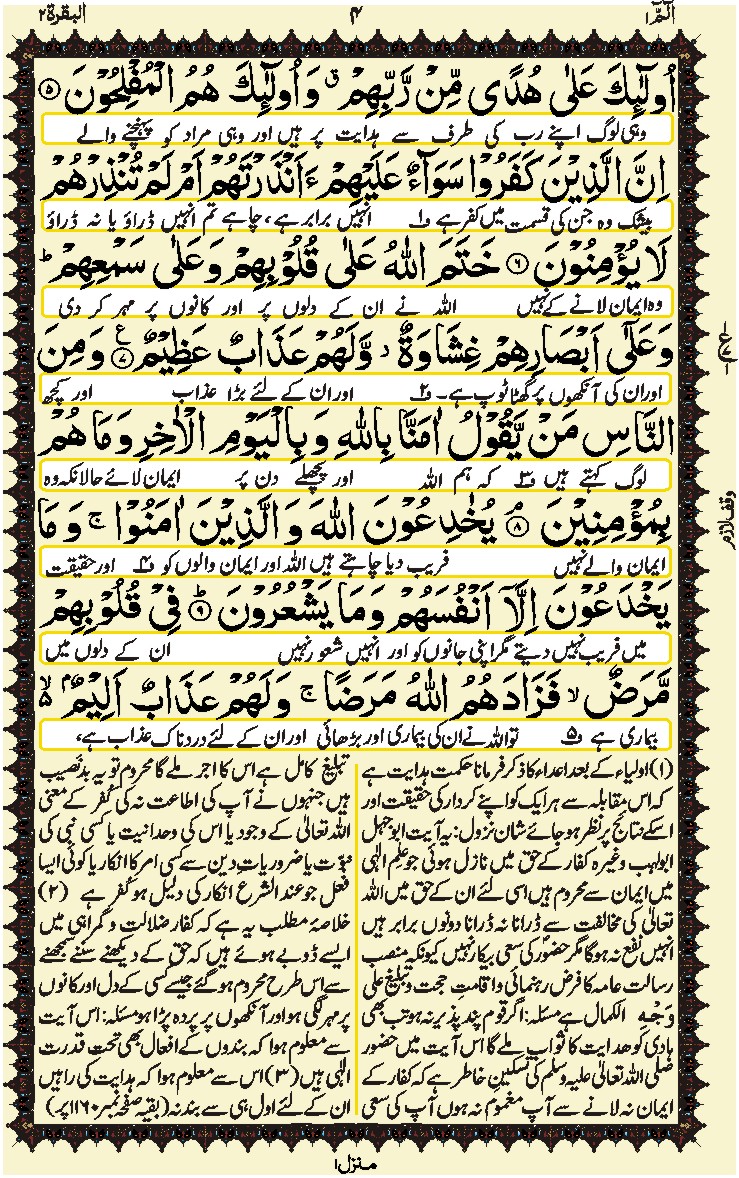 الٓمّٓ ۱
۴
البقرۃ ۲
اُولٰٓئِكَ عَلٰى هُدًى مِّنْ رَّبِّهِمْ ۗ وَاُولٰٓئِكَ هُمُ الْمُفْلِحُوْنَ ۝۵
وہی لوگ اپنے رب کی طرف سے ہدایت پر ہیں اور وہی مراد کو پہنچنے والے
اِنَّ الَّذِيْنَ كَفَرُوْا سَوَآءٌ عَلَيْهِمْ ءَاَنْذَرْتَهُمْ اَمْ لَمْ تُنْذِرْهُمْ
بیشک وہ جن کی قسمت میں کفر ہے ف۱ انہیں برابر ہے، چاہے تم انہیں ڈراؤ یا نہ ڈراؤ
لَا يُؤْمِنُوْنَ ۝۶ خَتَمَ اللّٰهُ عَلٰى قُلُوْبِهِمْ وَعَلٰى سَمْعِهِمْ ؕ
وہ ایمان لانے کے نہیں اللہ نے ان کے دلوں پر اور کانوں پر مہر کر دی
وَعَلٰٓى اَبْصَارِهِمْ غِشَاوَةٌ ؗ وَّلَهُمْ عَذَابٌ عَظِيْمٌ ۝۷ ع وَمِنَ
اور ان کی آنکھوں پر گھٹاٹوپ ہے۔ ف۲ اور ان کے لئے بڑا عذاب اور کچھ
النَّاسِ مَنْ يَّقُوْلُ اٰمَنَّا بِاللّٰهِ وَبِالْيَوْمِ الْاٰخِرِ وَمَا هُمْ
لوگ کہتے ہیں ف۳ کہ ہم اللہ اور پچھلے دن پر ایمان لائے حالانکہ وہ
بِمُؤْمِنِيْنَ ۝۸ۘ يُخٰدِعُوْنَ اللّٰهَ وَالَّذِيْنَ اٰمَنُوْا ۚ وَمَا
وقف لازم
ایمان والے نہیں فریب دیا چاہتے ہیں اللہ اور ایمان والوں کو ف۴ اور حقیقت
يَخْدَعُوْنَ اِلَّآ اَنْفُسَهُمْ وَمَا يَشْعُرُوْنَ ۝۹ؕ فِيْ قُلُوْبِهِمْ
میں فریب نہیں دیتے مگر اپنی جانوں کو اور انہیں شعور نہیں ان کے دلوں میں
مَّرَضٌ ۙ فَزَادَهُمُ اللّٰهُ مَرَضًا ۚ وَلَهُمْ عَذَابٌ اَلِيْمٌۢ ۙ۵
بیماری ہے ف۵ تو اللہ نے ان کی بیماری اور بڑھائی اور ان کے لئے دردناک عذاب ہے،
(۱) اولیاء کے بعد اعداء کا ذکر فرمانا حکمت ہدایت ہے
کہ اس مقابلہ سے ہر ایک کو اپنے کردار کی حقیقت اور
اسکے نتائج پر نظر ہو جائے شان نزول: یہ آیت ابوجہل
ابولہب وغیرہ کفار کے حق میں نازل ہوئی جو علم الٰہی
میں ایمان سے محروم ہیں اسی لئے ان کے حق میں اللہ
تعالٰی کی مخالفت سے ڈرانا نہ ڈرانا دونوں برابر ہیں
انہیں نفع نہ ہوگا مگر حضور کی سعی بیکار نہیں کیونکہ منصب
رسالت عامہ کا فرض رہنمائی و اقامت حجت و تبلیغ علٰی
وَجْهِ الکمال ہے مسئلہ: اگر قوم پند پذیر نہ ہو تب بھی
ہادی کو ھدایت کا ثواب ملے گا اس آیت میں حضور
صلی اللہ تعالٰی علیہ وسلم کی تسکین خاطر ہے کہ کفار کے
ایمان نہ لانے سے آپ مغموم نہ ہوں آپ کی سعی
تبلیغ کامل ہے اس کا اجر ملے گا محروم تو یہ بدنصیب
ہیں جنہوں نے آپ کی اطاعت نہ کی کُفر کے معنی
اللہ تعالٰی کے وجود یا اس کی وحدانیت یا کسی نبی کی
نبوت یا ضروریاتِ دین سے کسی امر کا انکار یا کوئی ایسا
فعل جو عند الشرع انکار کی دلیل ہو کُفر ہے (۲)
خلاصۂ مطلب یہ ہے کہ کفار ضلالت و گمراہی میں
ایسے ڈوبے ہوئے ہیں کہ حق کے دیکھنے سننے سمجھنے
سے اس طرح محروم ہوگئے جیسے کسی کے دل اور کانوں
پر مہر لگی ہو اور آنکھوں پر پردہ پڑا ہو مسئلہ: اس آیت
سے معلوم ہوا کہ بندوں کے افعال بھی تحت قدرت
الٰہی ہیں (۳) اس سے معلوم ہوا کہ ہدایت کی راہیں
ان کے لئے اول ہی سے بند نہ (بقیہ صفحہ نمبر ۱۱۶۰ پر)
منزل ۱